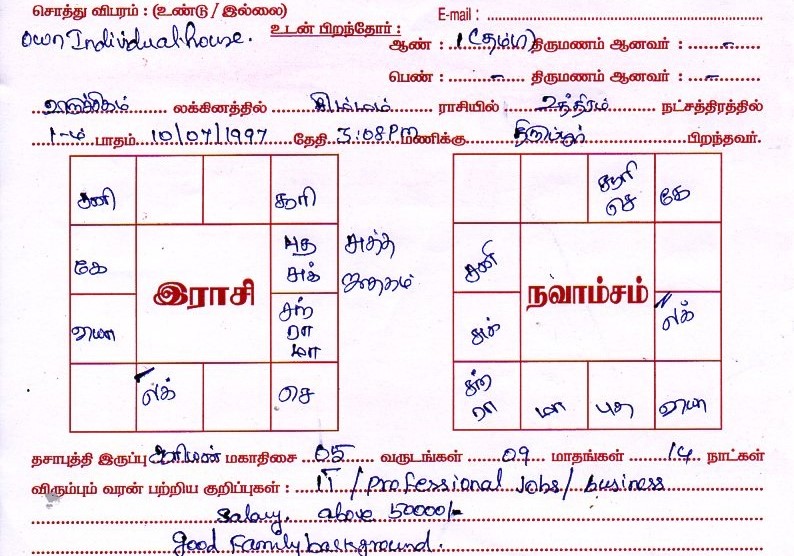 சொத்து விபரம் : (உண்டு / இல்லை) E-mail :
own Individual house. உடன் பிறந்தோர் : ஆண் : 1 (தம்பி) திருமணம் ஆனவர் : -
பெண் : - திருமணம் ஆனவர் : -
லக்கினத்தில் ராசியில் உத்திரம் நட்சத்திரத்தில்
1-ம் பாதம் 10/07/1997 தேதி 3:08PM மணிக்கு பிறந்தவர்.
சனி சூரி
கே புத சுத்த
சுக் ஜாதகம்
இராசி
சந்
ரா
மா
லக் செ
சூரி கே
செ
சனி
சுக் லக்
நவாம்சம்
சந்
ரா மா புத
தசாபுத்தி இருப்பு சூரியன் மகாதிசை 05 வருடங்கள் 09 மாதங்கள் 14 நாட்கள்
விரும்பும் வரன் பற்றிய குறிப்புகள் : IT / Professional Jobs / business
Salary. above 50000/-
Good Family background.